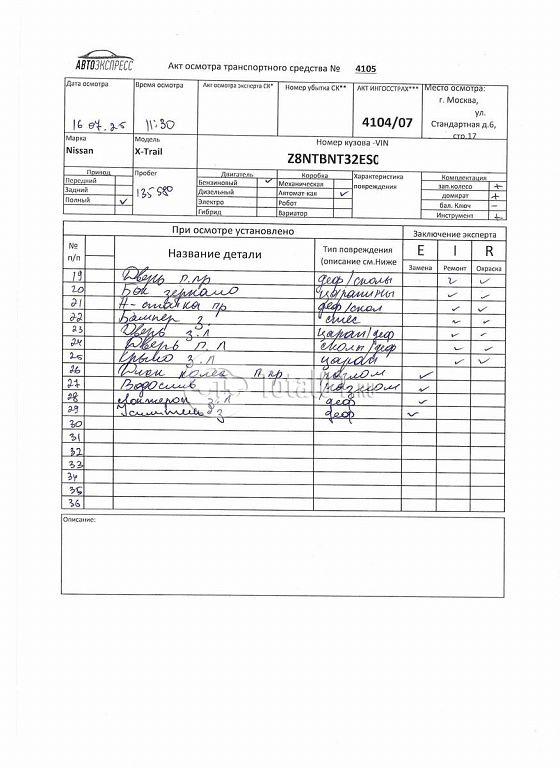 АВТОЭКСПРЕСС
Акт осмотра транспортного средства № 4105
Дата осмотра
16 07. 25
Время осмотра
11:30
Акт осмотра эксперта СК*
Номер убытка СК**
АКТ ИНГОССТРАХ***
4104/07
Место осмотра:
г. Москва,
ул.
Стандартная д.6,
стр.17
Марка
Nissan
Модель
X-Trail
Номер кузова -VIN
Z8NTBNT32ESC
Привод
Передний
Задний
Полный ✓
Пробег
135580
Двигатель
Бензиновый ✓
Дизельный
Электро
Гибрид
Коробка
Механическая
Автомат кая ✓
Робот
Вариатор
Характеристика
повреждения
Комплектация
зап.колесо +
домкрат +
бал. Ключ –
Инструмент +
При осмотре установлено
Заключение эксперта
№
п/п
Название детали
Тип повреждения
(описание см.Ниже
E I R
Замена Ремонт Окраска
19 Дверь п.пр деф/сколы 2 ✓
20 Бок зеркало царапины ✓ ✓
21 А-стойка пр деф/скол ✓ ✓
22 Бампер з. ✓ ✓
23 Дверь з.л царап/деф ✓ ✓
24 Дверь п.л сколы/деф ✓ ✓
25 Крыло з.л царап ✓ ✓
26 Диск колеса п.пр излом ✓
27 Водослив излом ✓
28 з.л деф ✓
29 Усилитель з деф ✓
30
31
32
33
34
35
36
Описание:
Total
.RU